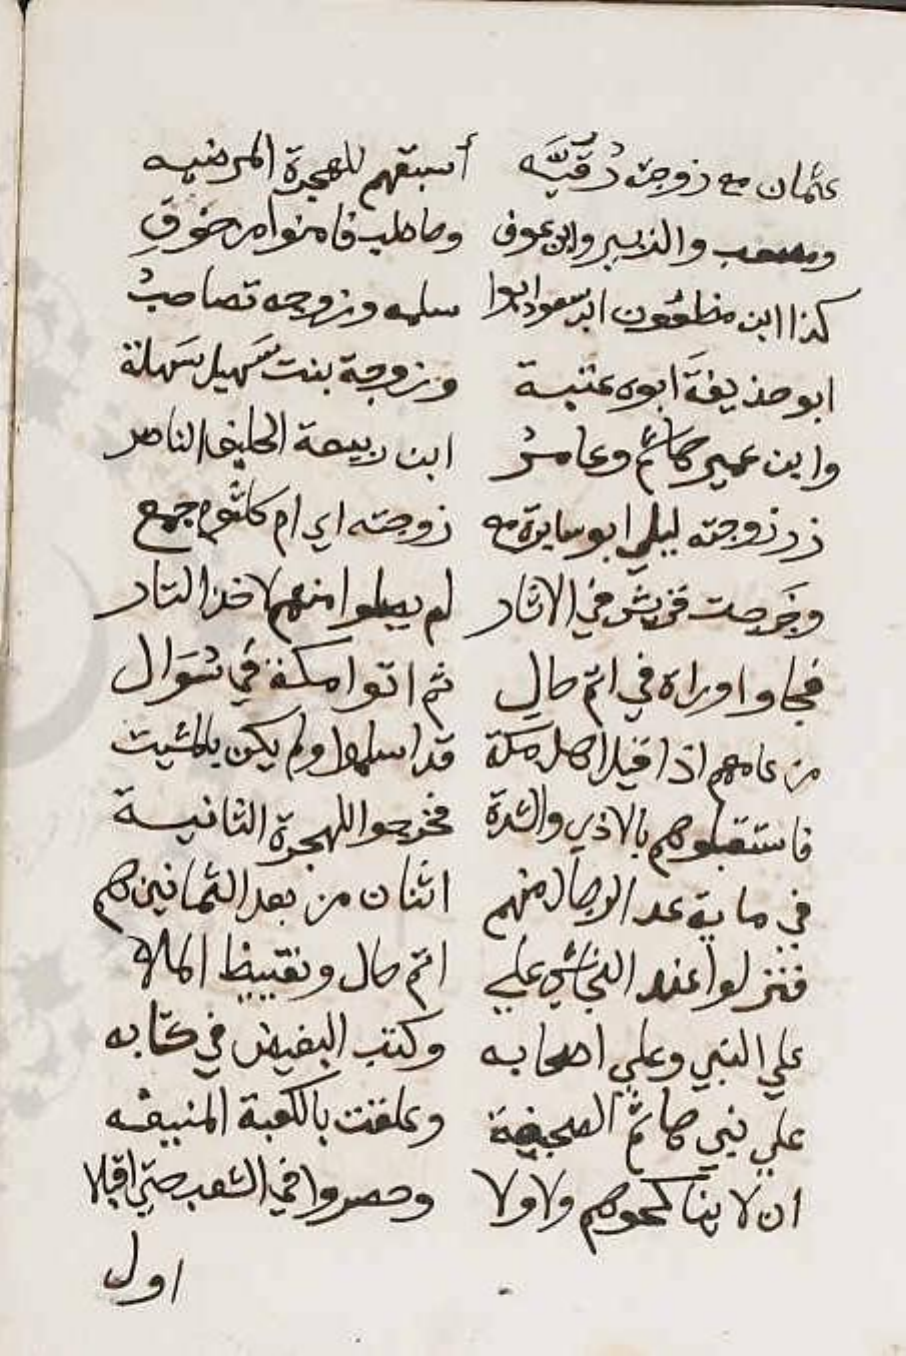 عثمان مع زوجته رُقَيَّه أسبقهم للهجرة المرضيه
ومصعب والزبير وابن عوف وحاطب فامنوا من خوفِ
كذا ابن مظعون ابن مسعود ابوا سلمه وزوجه تصاحبُ
ابو حذيفةَ ابوه عتبة وزوجة بنت سُهيل سَهلة
وابن عمير هاشم وعامرُ ابن ربيعة الحليف الناصر
زد زوجته ليلي ابو سبرة مع زوجته اي ام كلثوم جمع
وخَرجت قريش في الاثار لم يصلوا منهم لاخذ الثار
فجاوروه في اتم حالِ ثم اتوا مكة في شوال
من عامهم اذا قيل اهل مكة قد اسلموا ولم يكن بالمثبت
فاستقبلوهم بالاذي والشدة فخرجوا للهجرة الثانية
في ماية عد الرجال منهم اثنان من بعد الثمانين هم
فنزلوا عند النجاشي علي اتم حال وتغيظ الملا
علي النبي وعلي اصحابه وكتب البغيض في كتابه
علي بني هاشم الصحيفة وعلقت بالكعبة المنيفه
ان لا يناكحوهم ولا ولا وحصروا في الشعب حتي اقبلا
اول